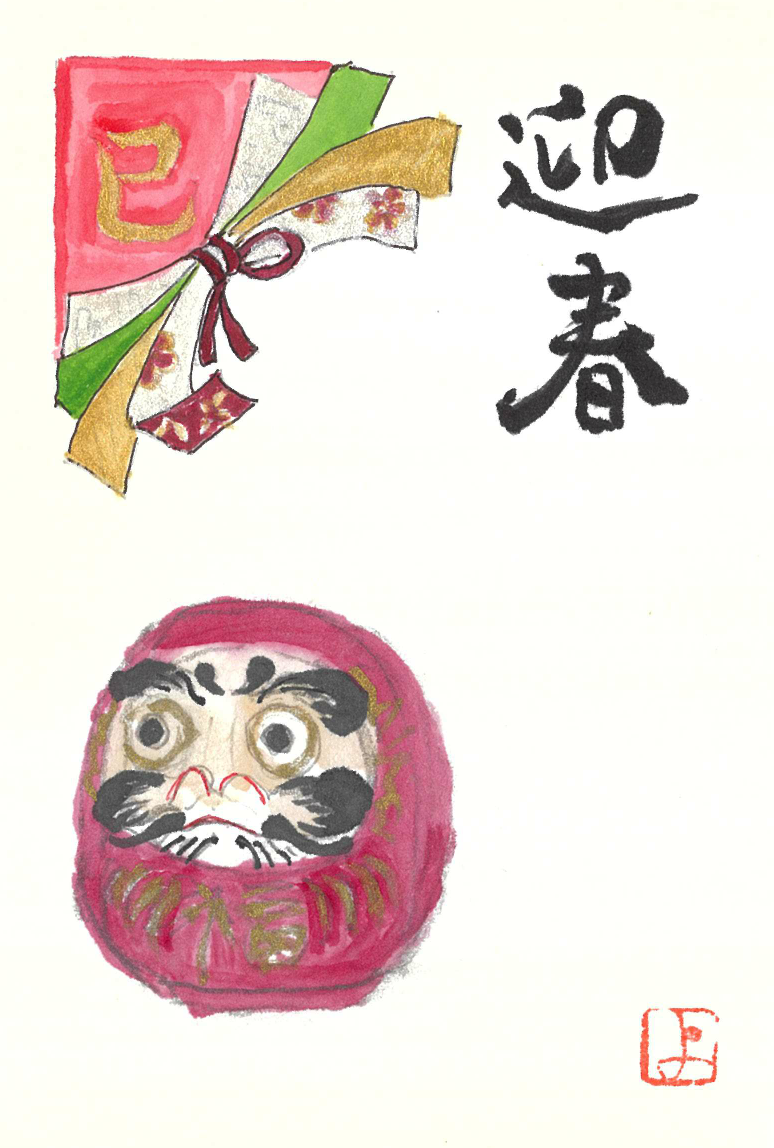 迎春
巳
福